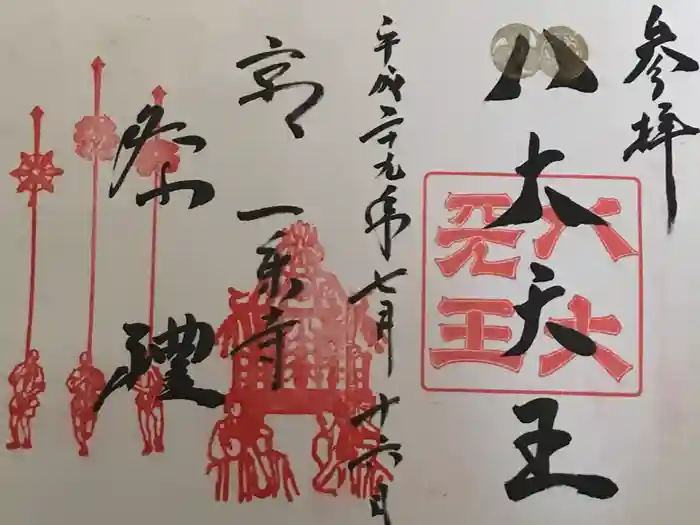 参拝
八大天王
八大天王
平成二十九年七月十六日
京 一乗寺
祭礼